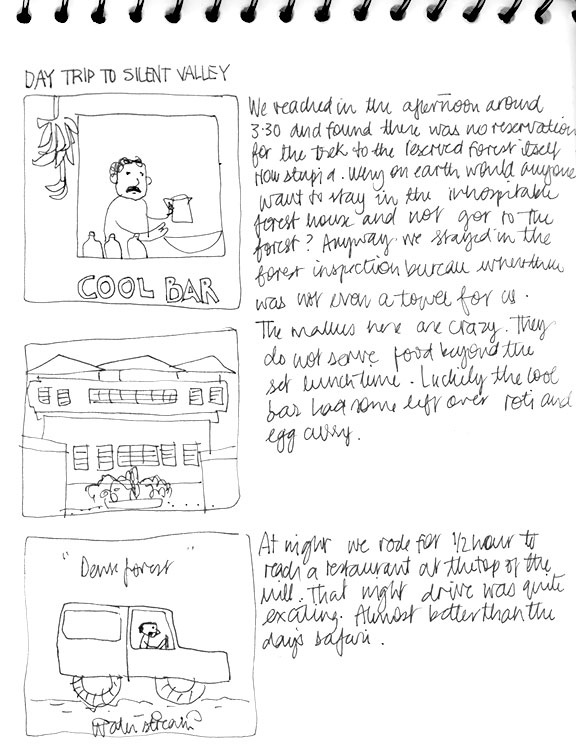 DAY TRIP TO SILENT VALLEY
We reached in the afternoon around
3.30 and found there was no reservation
for the trek to the reserved forest itself
How stupid. Why on earth would anyone
want to stay in the inhospitable
forest house and not go to the
forest? Anyway we stayed in the
forest inspection bureau where there
was not even a towel for us.
The mallus here are crazy. They
do not serve food beyond the
set lunch time. Luckily the cool
bar had some left over roti and
egg curry.
COOL BAR
At night we rode for 1/2 hour to
reach a restaurant at the top of the
hill. That night drive was quite
exciting. Almost better than the
day's safari.
"Dark forest"
Water stream